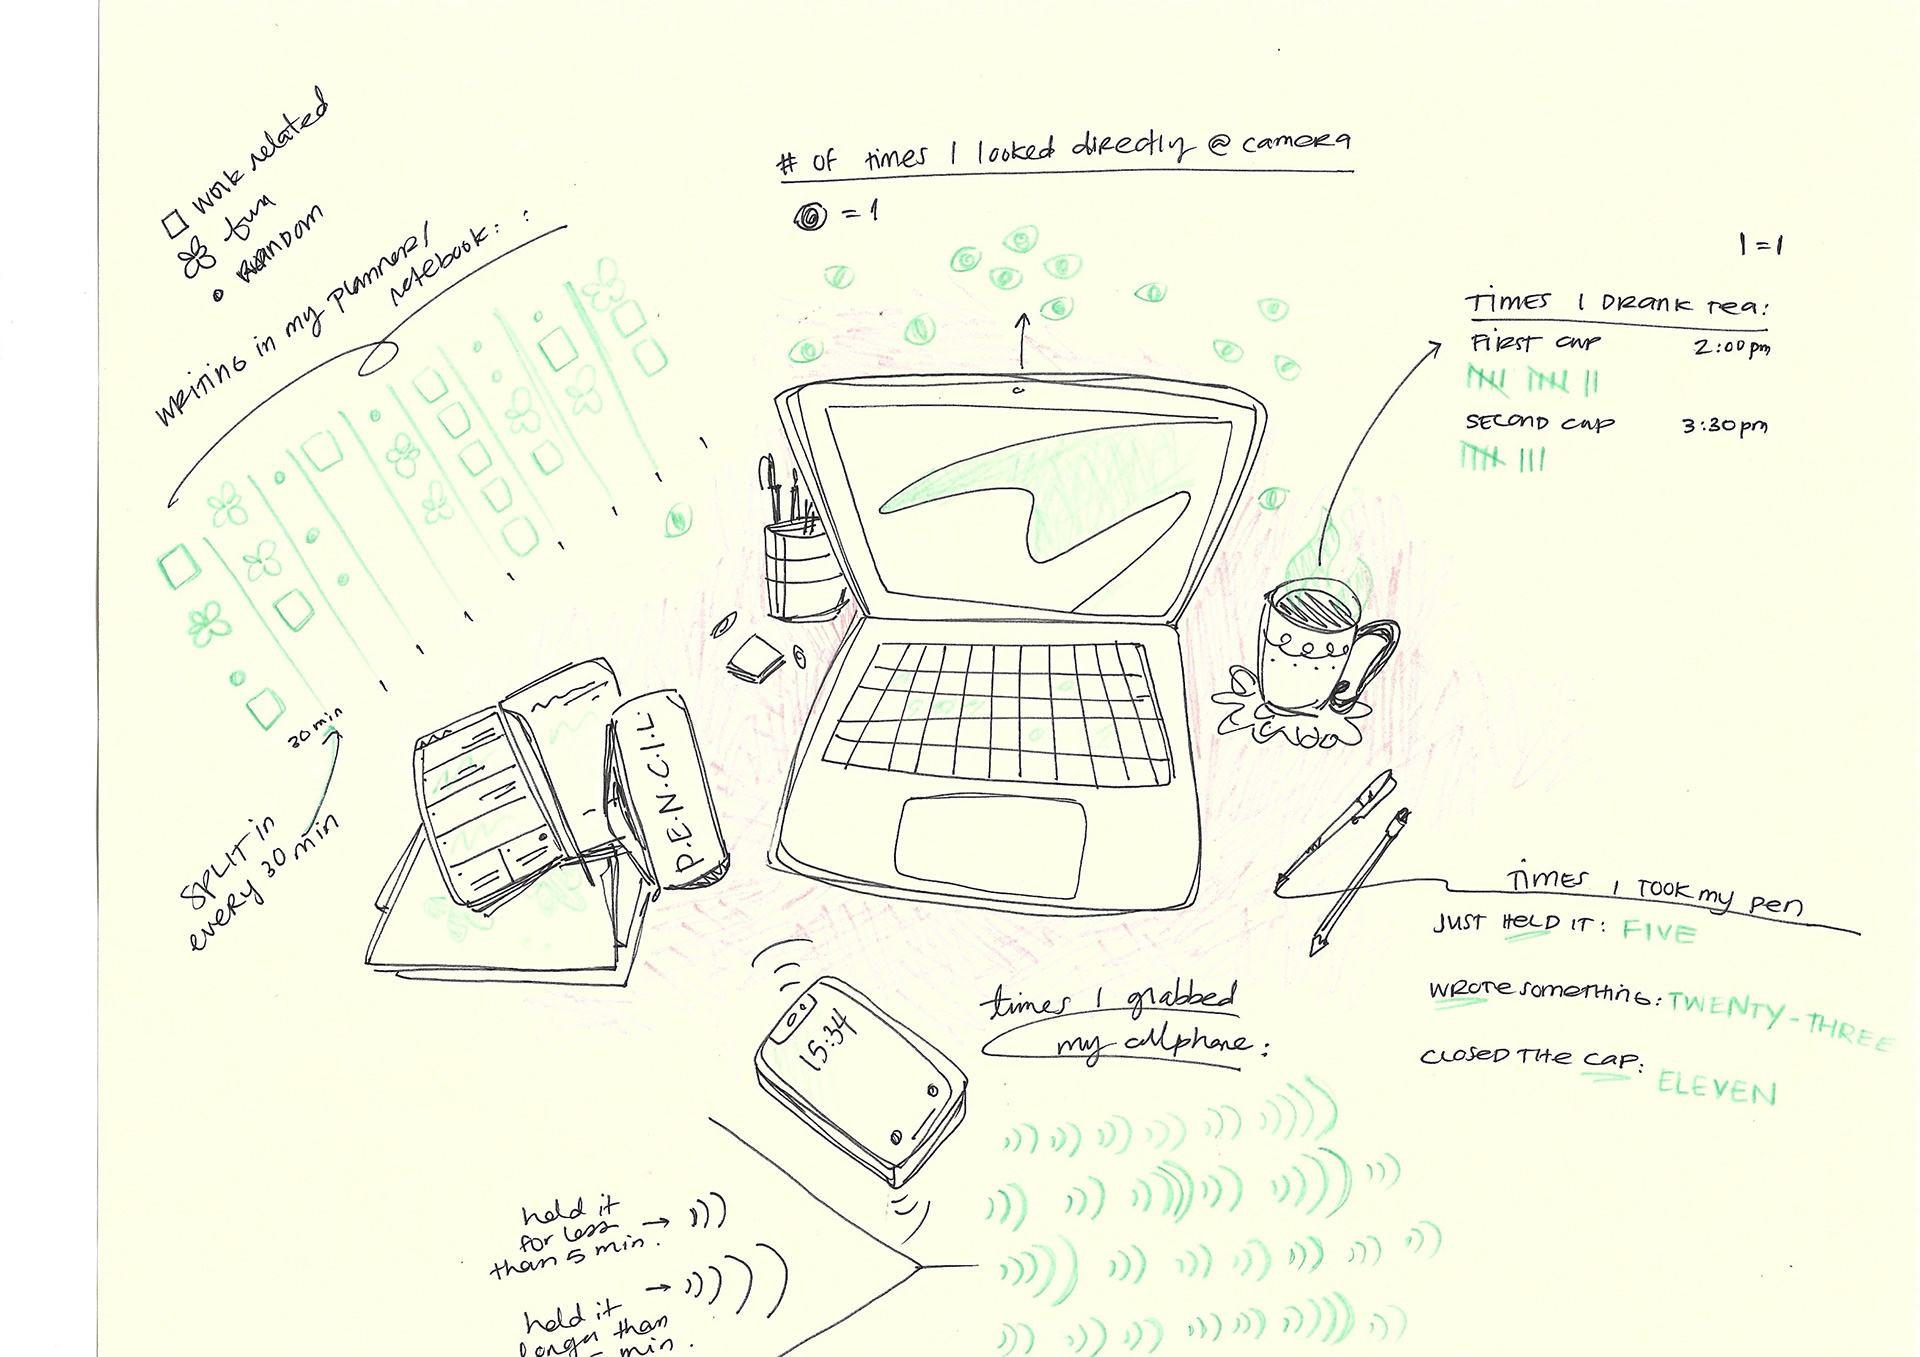 □ work related
fun
random
writing in my planner/
notebook:
30 min
SPLIT in
every 30 min
# of times I looked directly @ camera
= 1
I = 1
Times I drank tea:
First cup 2:00pm
Second cup 3:30pm
P.E.N.C.I.L.
Times I took my pen
Just held it: FIVE
Wrote something: TWENTY-THREE
Closed the cap: ELEVEN
15:34
times I grabbed
my cellphone:
held it
for less
than 5 min.
held it
longer than
min.